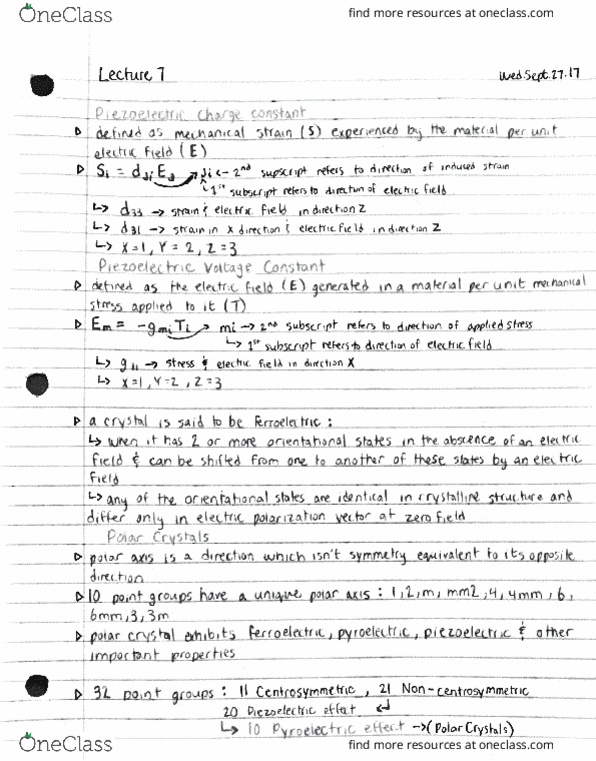 OneClass
find more resources at oneclass.com
Lecture 7
Wed Sept. 27.17
Piezoelectric Charge constant
▷ defined as mechanical strain (S) experienced by the material per unit
electric field (E)
▷ Si = dji Ej → ji ← 2nd supscript refers to direction of induced strain
↳ 1st subscript refers to direction of electric field
↳ d33 → strain & electric field in direction Z
↳ d31 → strain in X direction & electric field in direction Z
↳ X=1, Y=2, Z=3
Piezoelectric Voltage Constant
▷ defined as the electric field (E) generated in a material per unit mechanical
stress applied to it (T)
▷ Em = -gmi Ti → mi → 2nd subscript refers to direction of applied stress
↳ 1st subscript refers to direction of electric field
↳ g11 → stress & electric field in direction X
↳ X=1, Y=2, Z=3
▷ a crystal is said to be ferroelectric :
↳ when it has 2 or more orientational states in the abscence of an electric
field & can be shifted from one to another of these states by an electric
field
↳ any of the orientational states are identical in crystalline structure and
differ only in electric polarization vector at zero field
Polar Crystals
▷ polar axis is a direction which isn't symmetry equivalent to its opposite
direction
▷ 10 point groups have a unique polar axis : 1, 2, m, mm2, 4, 4mm, 6,
6mm, 3, 3m
▷ polar crystal exhibits ferroelectric, pyroelectric, piezoelectric & other
important properties
▷ 32 point groups : 11 Centrosymmetric, 21 Non-centrosymmetric
20 Piezoelectric effect ↲
↳ 10 Pyroelectric effect → (Polar Crystals)
OneClass
find more resources at oneclass.com